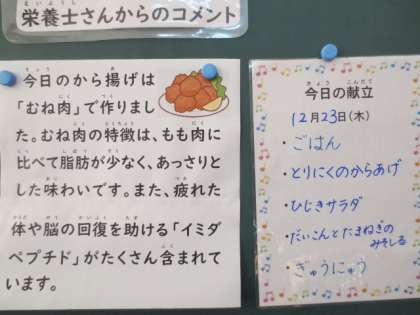 栄養士さんからのコメント
今日のから揚げは
「むね肉」で作りまし
た。むね肉の特徴は、もも肉に
比べて脂肪が少なく、あっさりと
した味わいです。また、疲れた
体や脳の回復を助ける「イミダ
ペプチド」がたくさん含まれて
います。
今日の献立
12月23日(木)
・ごはん
・とりにくのからあげ
・ひじきサラダ
・だいこんとたまねぎの
みそしる
・ぎゅうにゅう